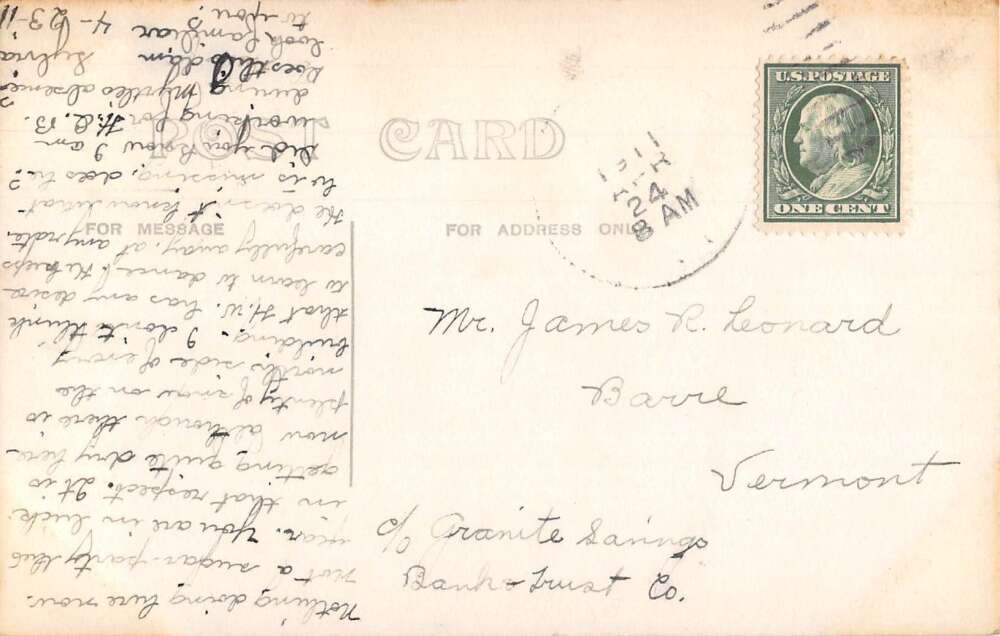 POST CARD
FOR MESSAGE
FOR ADDRESS ONLY
U.S. POSTAGE
ONE CENT
1911
APR
24
8 AM
Mr. James R. Leonard
Barre
Vermont
c/o Granite Savings
Bank & Trust Co.
Nothing doing here now.
not a sugar-party this
year. You are in luck
in that respect. It is
getting quite dry here
now although there is
plenty of snow on the
north side of every
building. I don't think
that H.W. has any desire
to learn to dance. He keeps
carefully away, at any rate.
He doesn't know what
he is missing, does he?
Did you know I am
working for H.A.B.
during Myrtle's absence?
Does this dam
look familiar
to you?
Sylvia
4-23-11